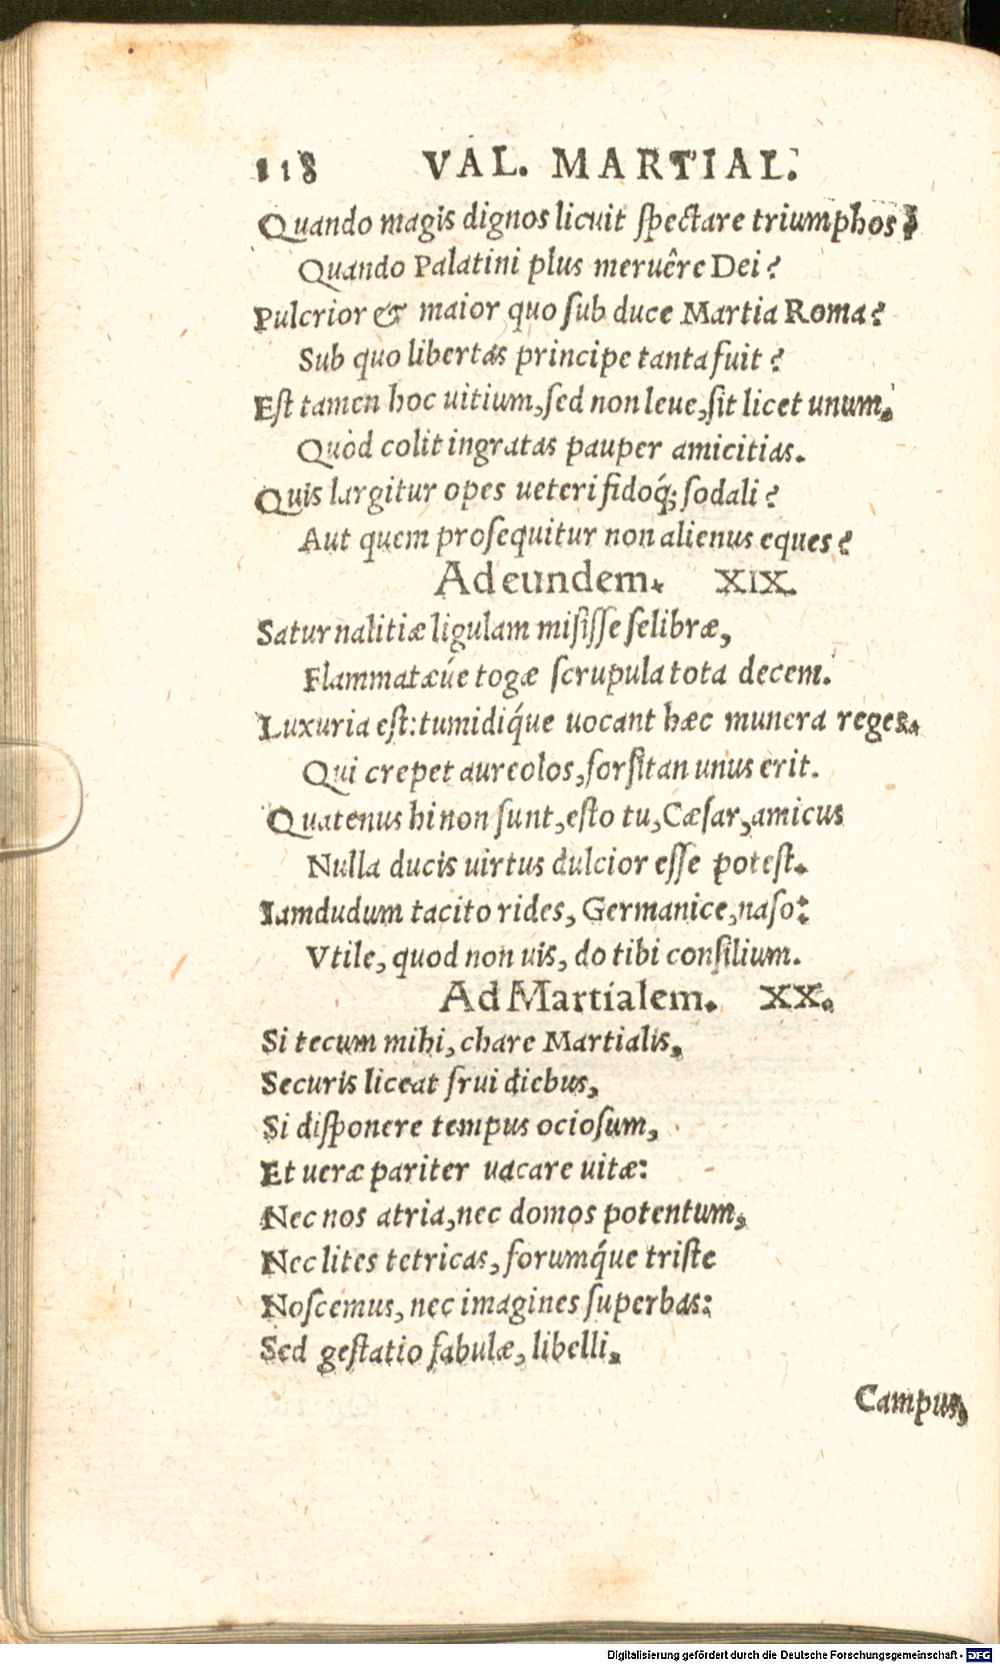 118 VAL. MARTIAL.
Quando magis dignos licuit spectare triumphos?
Quando Palatini plus meruêre Dei?
Pulcrior & maior quo sub duce Martia Roma?
Sub quo libertas principe tanta fuit?
Est tamen hoc uitium, sed non leue, sit licet unum,
Quòd colit ingratas pauper amicitias.
Quis largitur opes ueteri fidoq́; sodali?
Aut quem prosequitur non alienus eques?
Ad eundem. XIX.
Saturnalitiæ ligulam misisse selibræ,
Flammatæúe togæ scrupula tota decem.
Luxuria est: tumidiq́ue uocant hæc munera reges.
Qui crepet aureolos, forsitan unus erit.
Quatenus hi non sunt, esto tu, Cæsar, amicus
Nulla ducis uirtus dulcior esse potest.
Iamdudum tacito rides, Germanice, naso:
Vtile, quod non uis, do tibi consilium.
Ad Martialem. XX.
Si tecum mihi, chare Martialis,
Securis liceat frui diebus,
Si disponere tempus ociosum,
Et ueræ pariter uacare uitæ:
Nec nos atria, nec domos potentum,
Nec lites tetricas, forumq́ue triste
Noscemus, nec imagines superbas:
Sed gestatio fabulæ, libelli,
Campus,
Digitalisierung gefördert durch die Deutsche Forschungsgemeinschaft - DFG